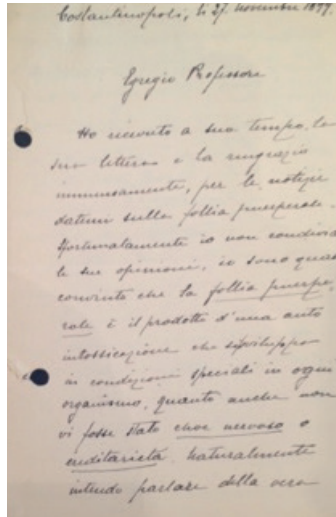 Costantinopoli, li 27. Novembre 1897.
Egregio Professore
Ho ricevuto a suo tempo, la
sua lettera e la ringrazio
immensamente, per le notizie
datemi sulla follia puerperale.
Sfortunatamente io non condivido
le sue opinioni, io sono quasi
convinto che la follia puerpe-
rale è il prodotto d'una auto
intossicazione che si sviluppa
in condizioni speciali in ogni
organismo, quanto anche non
vi fosse stato choc nervoso o
ereditarietà. Naturalmente
intendo parlare della vera